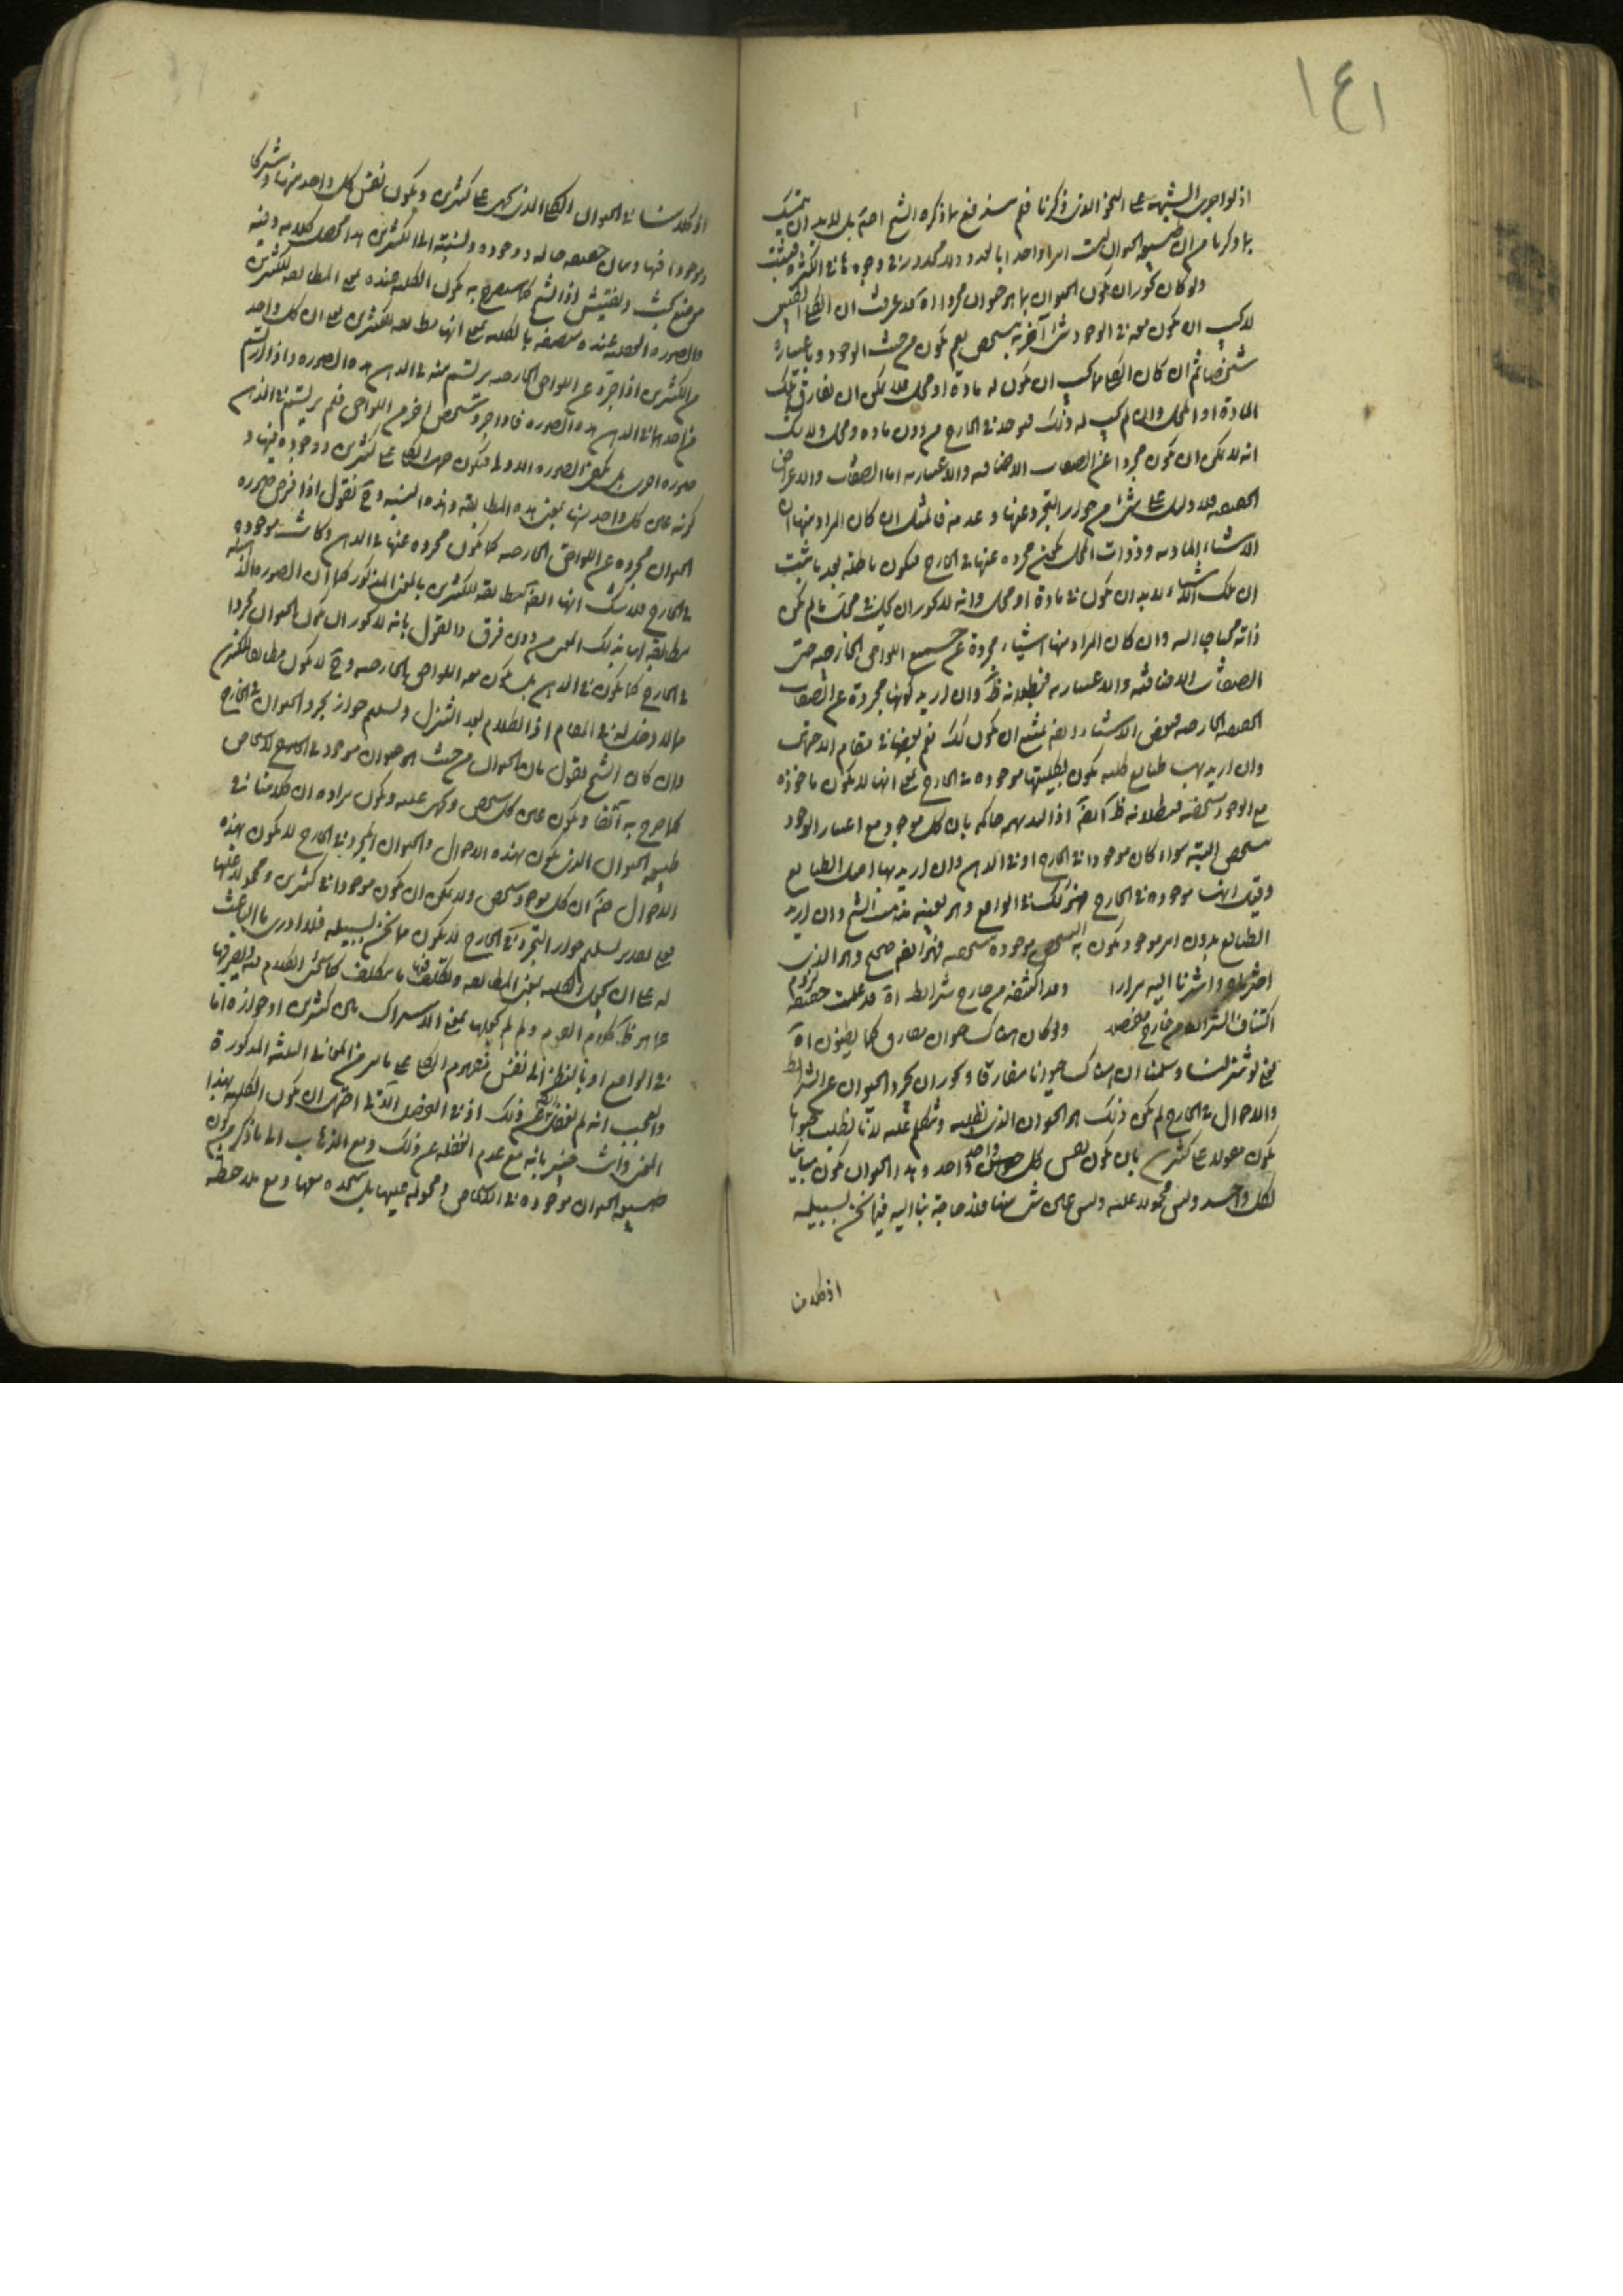 ١٤١
اذ لو اجرى الشبهة على النحو الذى ذكرنا فلم يندفع بما ذكره الشيخ اصلا بل لابد ان يتمسك
بما ذكرنا من ان طبيعة الحيوان ليست امرا واحدا بالعدد ولا محذور فى وجودها فى الكثرة فتثبت
ولو كان يجوز ان يكون الحيوان بما هو حيوان مجردا اه قد عرفت ان الكلى الطبيعى
لا يجب ان يكون معه فى الوجود شىء آخر به يتشخص نعم يكون من حيث الوجود وباعتباره
شخصا ثم ان كان الكلى مما يجب ان يكون له مادة او محل فلا يمكن ان يفارق تلك
المادة او المحل وان لم يجب له ذلك فيوجد فى الخارج من دون مادة ومحل ولا شك
انه لا يمكن ان يكون مجردا عن الصفات الاضافية والاعتبارية اما الصفات والاعراض
الحقيقية فلا دليل على شىء من جواز التجرد عنها وعدمه فالمثل ان كان المراد منها ان
الاشياء المادية وذوات المحل تكون مجردة عنها فى الخارج فيكون باطلة بعد ما ثبت
ان تلك الاشياء لابد ان يكون فى مادة او محل وانه لا يجوز ان يحل فى محل ما لم يكن
ذاته محتاجا اليه وان كان المراد منها اشياء مجردة عن جميع اللواحق الخارجية حتى
الصفات الاضافية والاعتبارية فبطلانه ظ وان اريد كونها مجردة عن الصفات
الحقيقية الخارجية فبعض الاشياء ايضا يمتنع ان يكون كذلك نعم بعضها فى مقام الاحتمال
وان اريد بها طبايع كلية يكون بكليتها موجودة فى الخارج بمعنى انها لا يكون ماخوذة
مع الوجود متشخصة فبطلانه ظ ايضا اذ البديهة حاكمة بان كل موجود مع اعتبار الوجود
متشخص البتة سواء كان موجودا فى الخارج او فى الذهن وان اريد بها اصل الطبايع
وقيل انها موجودة فى الخارج فهو كذلك فى الواقع وهو بعينه مذهب الشيخ وان اريد
الطبايع بدون امر موجود يكون به التشخص موجودة متشخصة فهو ايضا صحيح وهو الذى
اخترناه واشرنا اليه مرارا وقد اكتنفه من خارج شرايط اه قد علمت حقيقة
اكتناف الشرايط من خارج مفصلا ولو كان هناك حيوان مفارق كما يظنون اه
يعنى لو تنزلنا وسلمنا ان هناك حيوانا مفارقا ويجوز ان يجرد الحيوان عن الشرايط
والاحوال فى الخارج لم يكن ذلك هو الحيوان الذى نطلبه ونتكلم عليه لانا نطلب حيوانا
يكون مقولا على كثيرين بان يكون نفس كل واحد واحد وهذا الحيوان يكون مباينا
لكل واحد وليس محمولا عليه وليس هو شىء منها فلا حاجة بنا اليه فيما نحن بسبيله
اذ كلامنا
اذ كلامنا فى الحيوان الكلى الذى يحمل على كثيرين ويكون نفس كل واحد منها مشتركا
وموجودا فيها وبيان حقيقة حاله ووجوده ونسبته الى الكثيرين هذا محصل كلامه وفيه
موضع بحث وتفتيش اذ الشيخ كما سيصرح به يكون الكلية عنده بمعنى المطابقة للكثيرين
والصورة العقلية عنده متصفة بالكلية بمعنى انها مطابقة للكثيرين بمعنى ان كل واحد
من الكثيرين اذا جرد عن اللواحق الخارجية يرتسم منه فى الذهن هذه الصورة واذا ارتسم
من احدها فى الذهن هذه الصورة فاذا جرد شخص اخر من اللواحق فلم يرتسم فى الذهن
صورة اخرى بل يكفى الصورة الاولى فيكون حمل الكلى على كثيرين ووجوده فيها و
كونه عين كل واحد منها بمعنى هذه المطابقة وهذه النسبة وح نقول اذا فرض صورة
الحيوان مجردة عن اللواحق الخارجية كما يكون مجردة عنها فى الذهن وكانت موجودة
فى الخارج فلا شك انها ايضا مطابقة للكثيرين بالمعنى المذكور كما ان الصورة الذهنية
مطابقة لها بذلك المعنى من دون فرق والقول بانه لا يجوز ان يكون الحيوان مجردا
فى الخارج كما يكون فى الذهن بل يكون معه اللواحق الخارجية وح لا يكون مطابقا للكثيرين
مما لا دخل له فى المقام اذ الكلام بعد التنزل وتسليم جواز تجرد الحيوان فى الخارج
وان كان الشيخ يقول بان الحيوان من حيث هو حيوان موجود فى الخارج فى الاشخاص
كما صرح به آنفا ويكون عين كل شخص ويحمل عليه ويكون مراده ان كلامنا فى
طبيعة الحيوان الذى يكون بهذه الاحوال والحيوان المجرد فى الخارج لا يكون بهذه
الاحوال ضرورة ان كل موجود شخص ولا يمكن ان يكون موجودا فى كثيرين ومحمولا عليها
فعلى تقدير تسليم جواز التجرد فى الخارج لا يكون مما نحن بسبيله فلا ادرى ما الباعث
له على ان يجعل الكلية بمعنى المطابقة ويتكلف فيها ما يتكلف كما سيجىء الكلام فيه ويصرفها
عما هو ظ كلام القوم ولم لم يجعلها بمعنى الاشتراك بين كثيرين او جوازه اما
فى الواقع او بالنظر الى نفس مفهوم الكلى على ما مر من المعانى الثلثة المذكورة
والعجب انه لم يغفل عن ذلك اذ فى الفصل الآتى احتمل ان يكون الكلية بهذا
المعنى وانت خبير بانه مع عدم الغفلة عن ذلك ومع الذهاب الى ما ذكر من كون
طبيعة الحيوان موجودة فى الاشخاص ومحمولة عليها بل متحدة معها ومع ملاحظة